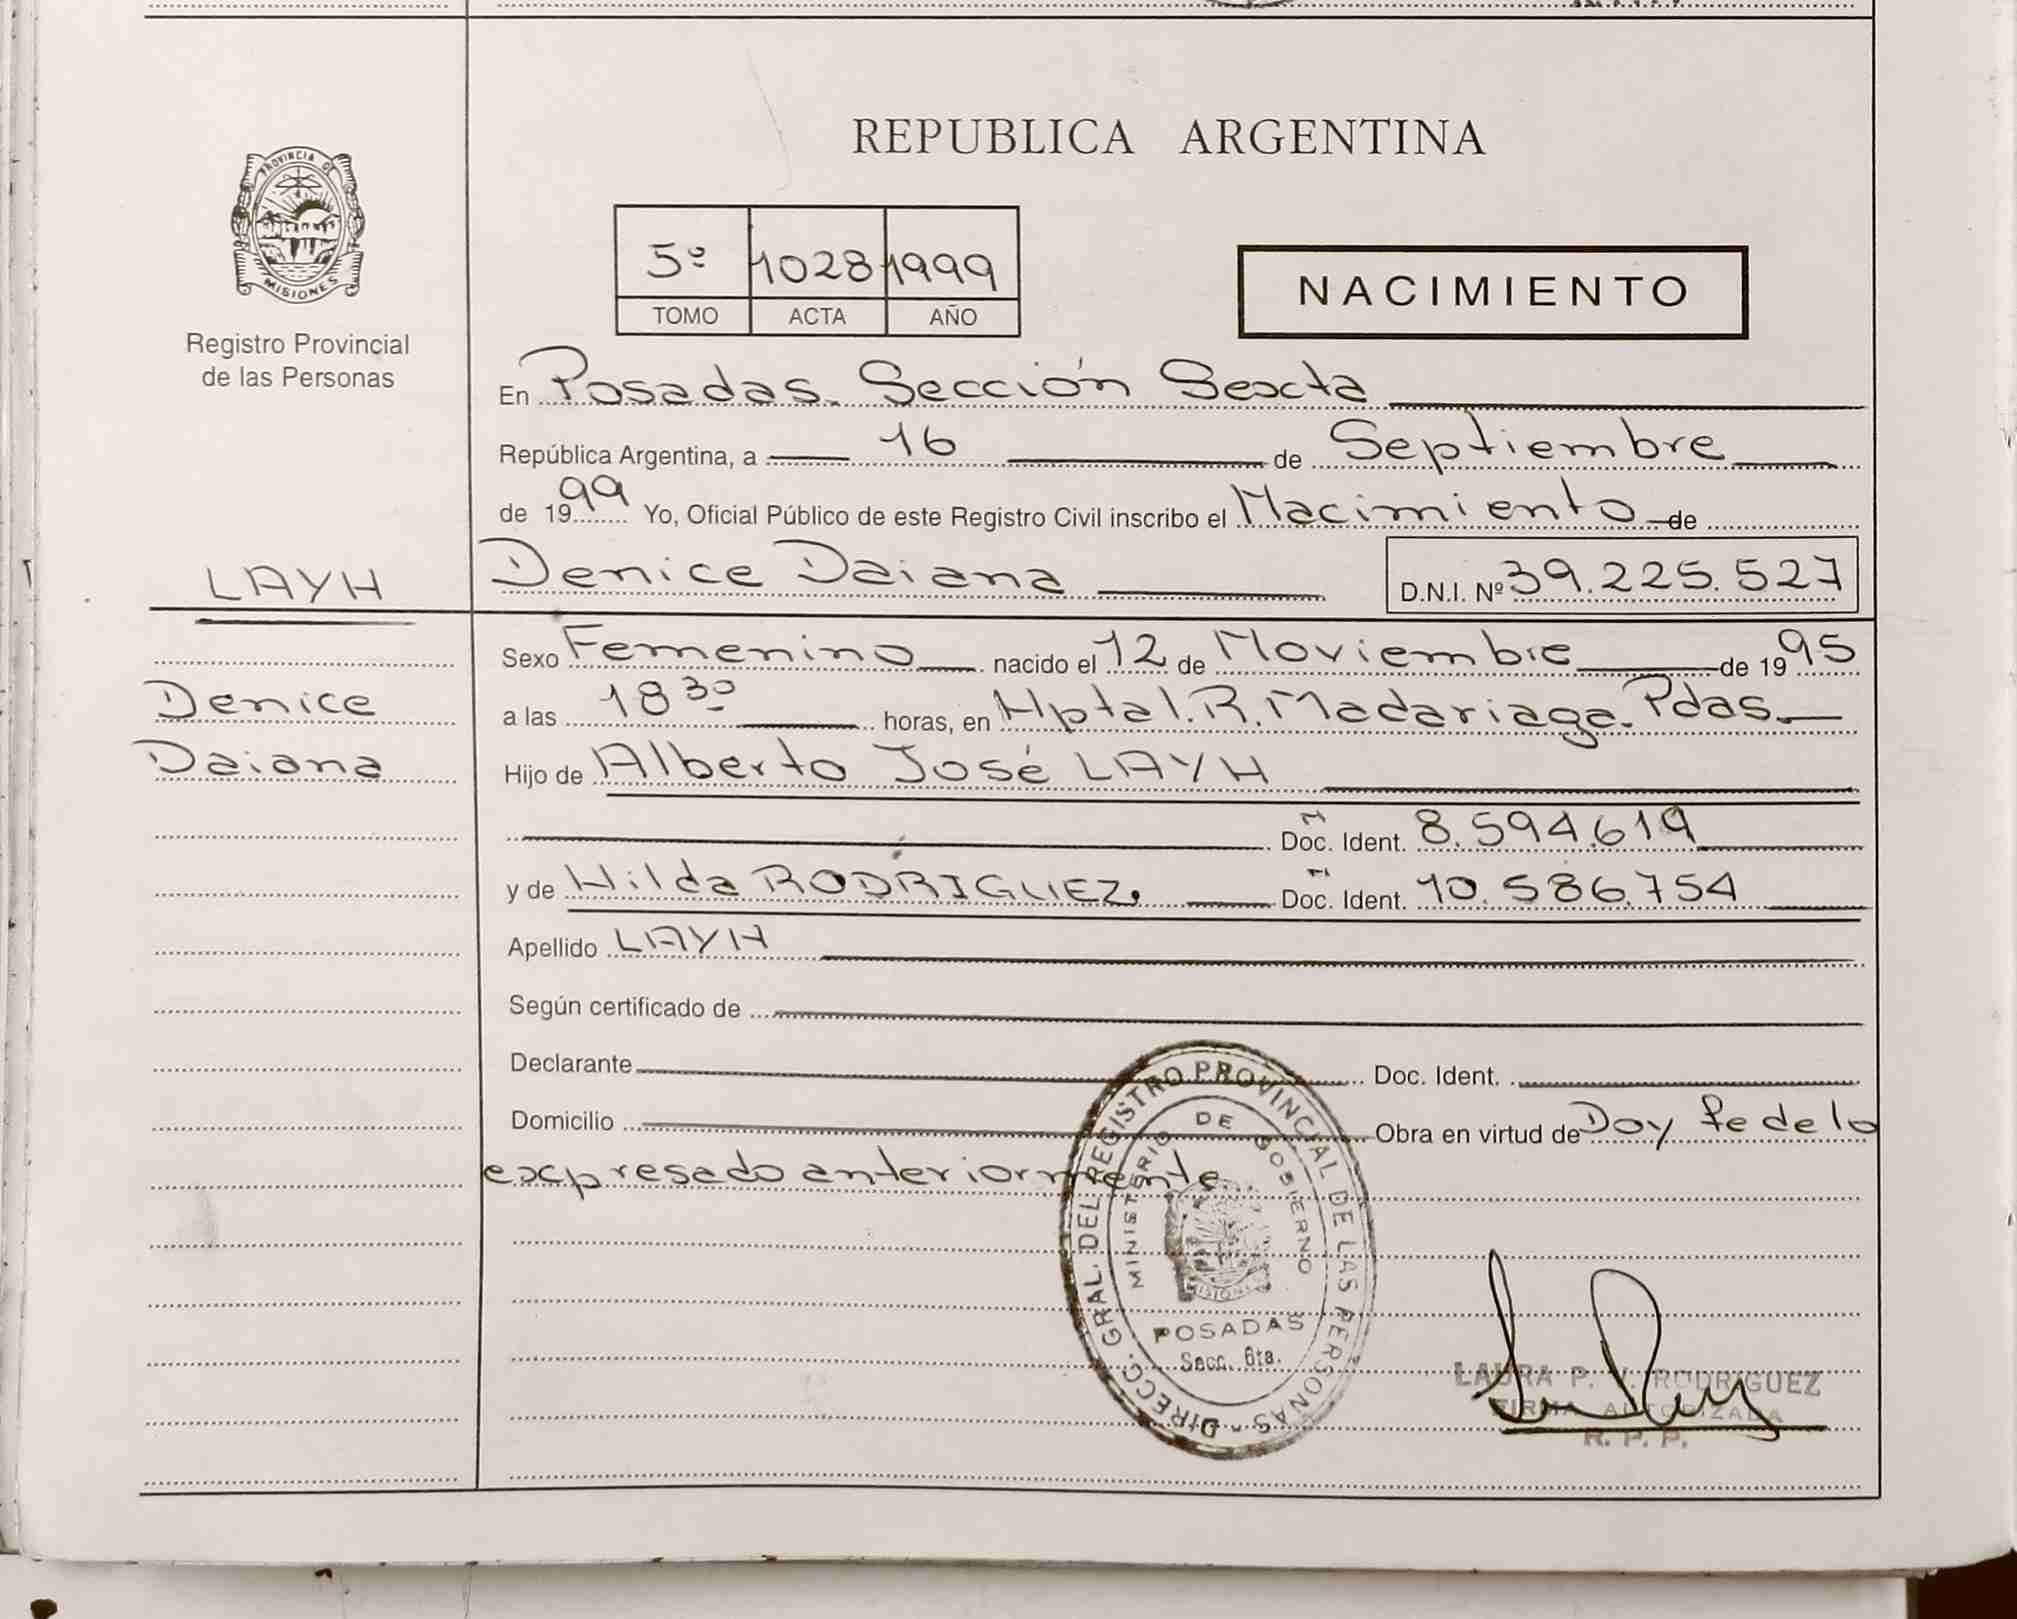 REPUBLICA ARGENTINA
PROVINCIA DE
MISIONES
Registro Provincial
de las Personas
5º 1028 1999
TOMO ACTA AÑO
NACIMIENTO
En Posadas. Sección Sexta
República Argentina, a 16 de Septiembre
de 1999 Yo, Oficial Público de este Registro Civil inscribo el Nacimiento de
LAYH
Denice Daiana D.N.I. Nº 39.225.527
Sexo Femenino nacido el 12 de Noviembre de 1995
Denice
a las 18 30 horas, en Hptal. R. Madariaga. Pdas.
Daiana
Hijo de Alberto José LAYH
Doc. Ident. 8.594.619
y de Hilda RODRIGUEZ. Doc. Ident. 10.586.754
Apellido LAYH
Según certificado de
Declarante Doc. Ident.
Domicilio Obra en virtud de Doy fe de lo
expresado anteriormente.
DIRECC. GRAL. DEL REGISTRO PROVINCIAL DE LAS PERSONAS
MINISTERIO DE GOBIERNO
MISIONES
POSADAS
Secc. 6ta.
LAURA P. V. RODRIGUEZ
FIRMA AUTORIZADA
R. P. P.